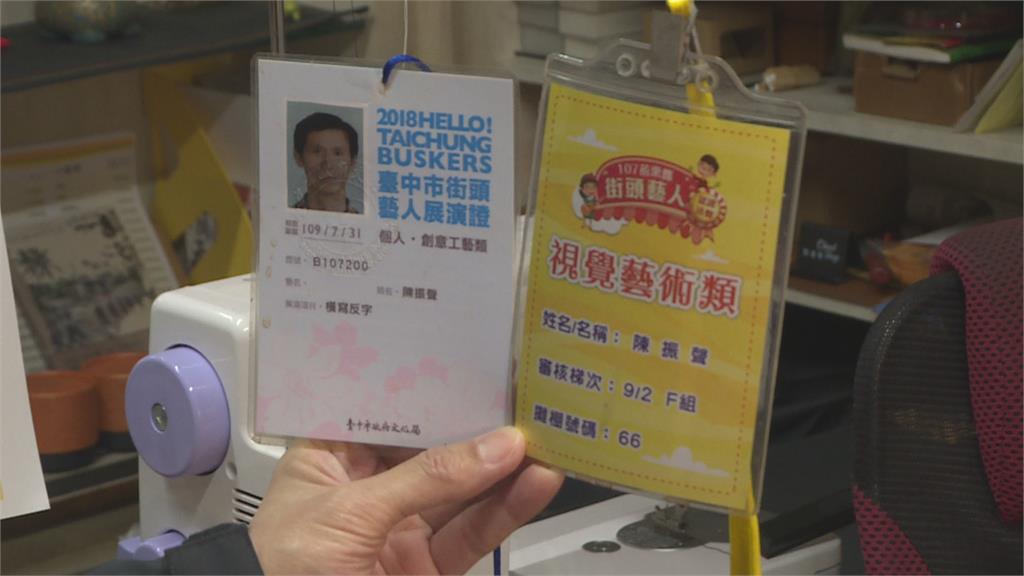 2018HELLO!
TAICHUNG
BUSKERS
臺中市街頭
藝人展演證
109/7/31
個人・創意工藝類
證號: B107200
藝名:
姓名: 陳振聲
展演項目: 橫寫反字
臺中市政府文化局
街頭藝人
視覺藝術類
姓名/名稱: 陳 振 聲
審核梯次: 9/2 F組
攤棚號碼: 66